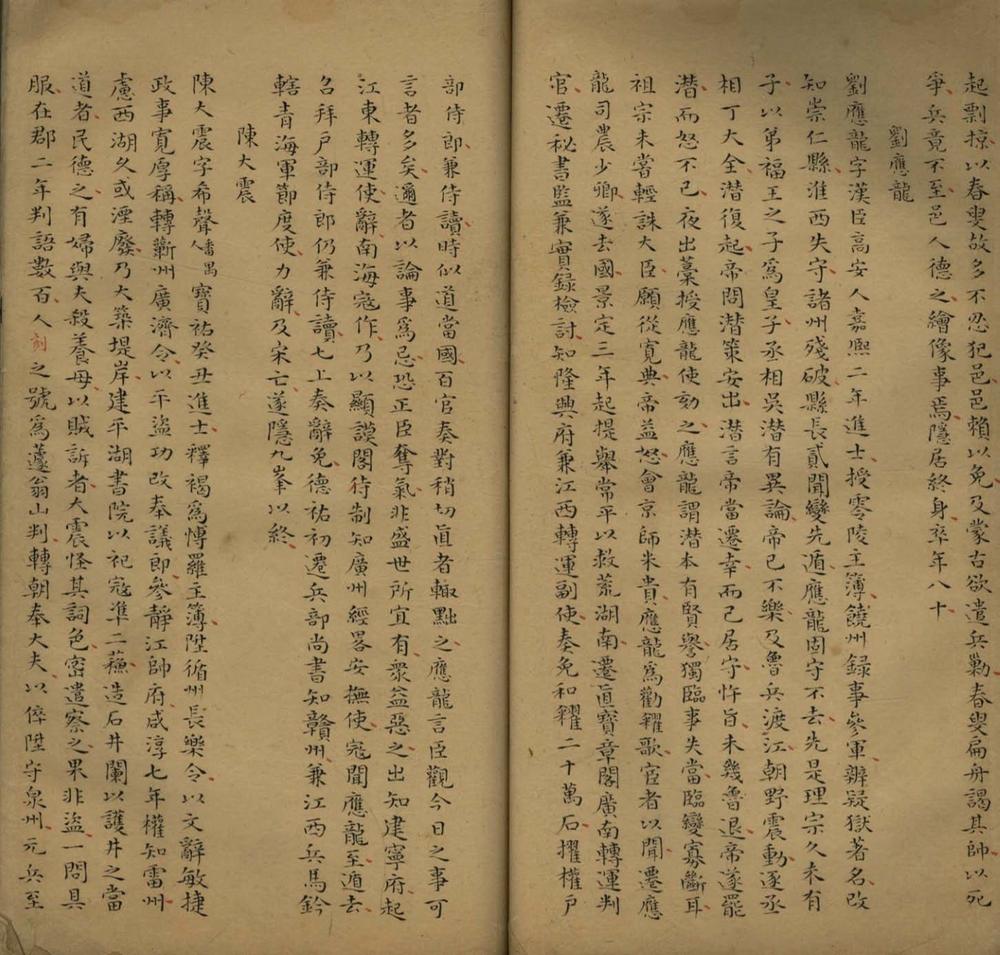 起剽掠以春叟故多不忍犯邑邑賴以免及蒙古欲遣兵勦春叟扁舟謁其帥以死
爭兵竟不至邑人德之繪像事焉隱居終身卒年八十
劉應龍
劉應龍字漢臣高安人嘉熙二年進士授零陵主簿饒州録事參軍辨疑獄著名改
知崇仁縣淮西失守諸州殘破縣長貳聞變先遁應龍固守不去先是理宗久未有
子以弟福王之子爲皇子丞相吳潛有異論帝已不樂及魯兵渡江朝野震動逐丞
相丁大全潛復起帝問潛策安出潛言帝當遷幸而己居守忤旨未幾魯退帝遂罷
潛而怒不已夜出藁授應龍使劾之應龍謂潛本有賢譽獨臨事失當臨變寡斷耳
祖宗未嘗輕誅大臣願從寬典帝益怒會京師米貴應龍爲勸糴歌宦者以聞遷應
龍司農少卿遂去國景定三年起提舉常平以救荒湖南遷直寶章閣廣南轉運判
官遷秘書監兼實録檢討知隆興府兼江西轉運副使奏免和糴二十萬石擢權戶
部侍郎兼侍讀時似道當國百官奏對稍切直者輙黜之應龍言臣觀今日之事可
言者多矣邇者以論事爲忌恐正臣奪氣非盛世所宜有衆益惡之出知建寧府起
江東轉運使辭南海寇作乃以顯謨閣待制知廣州經畧安撫使寇聞應龍至遁去
召拜戶部侍郎仍兼侍讀七上奏辭免德祐初遷兵部尚書知贛州兼江西兵馬鈐
轄青海軍節度使力辭及宋亡遂隱九峯以終
陳大震
陳大震字希聲番禺人寶祐癸丑進士釋褐爲愽羅主簿陞循州長樂令以文辭敏捷
政事寬厚稱轉蘄州廣濟令以平盜功改奉議郎參靜江帥府咸淳七年權知雷州
慮西湖久或湮廢乃大築堤岸建平湖書院以祀寇準二蘓造石井闌以護井之當
道者民德之有婦與夫殺養母以賊訴者大震怪其詞色密遣察之果非盜一問具
服在郡二年判語數百人刻之號爲蘧翁山判轉朝奉大夫以倅陞守泉州元兵至